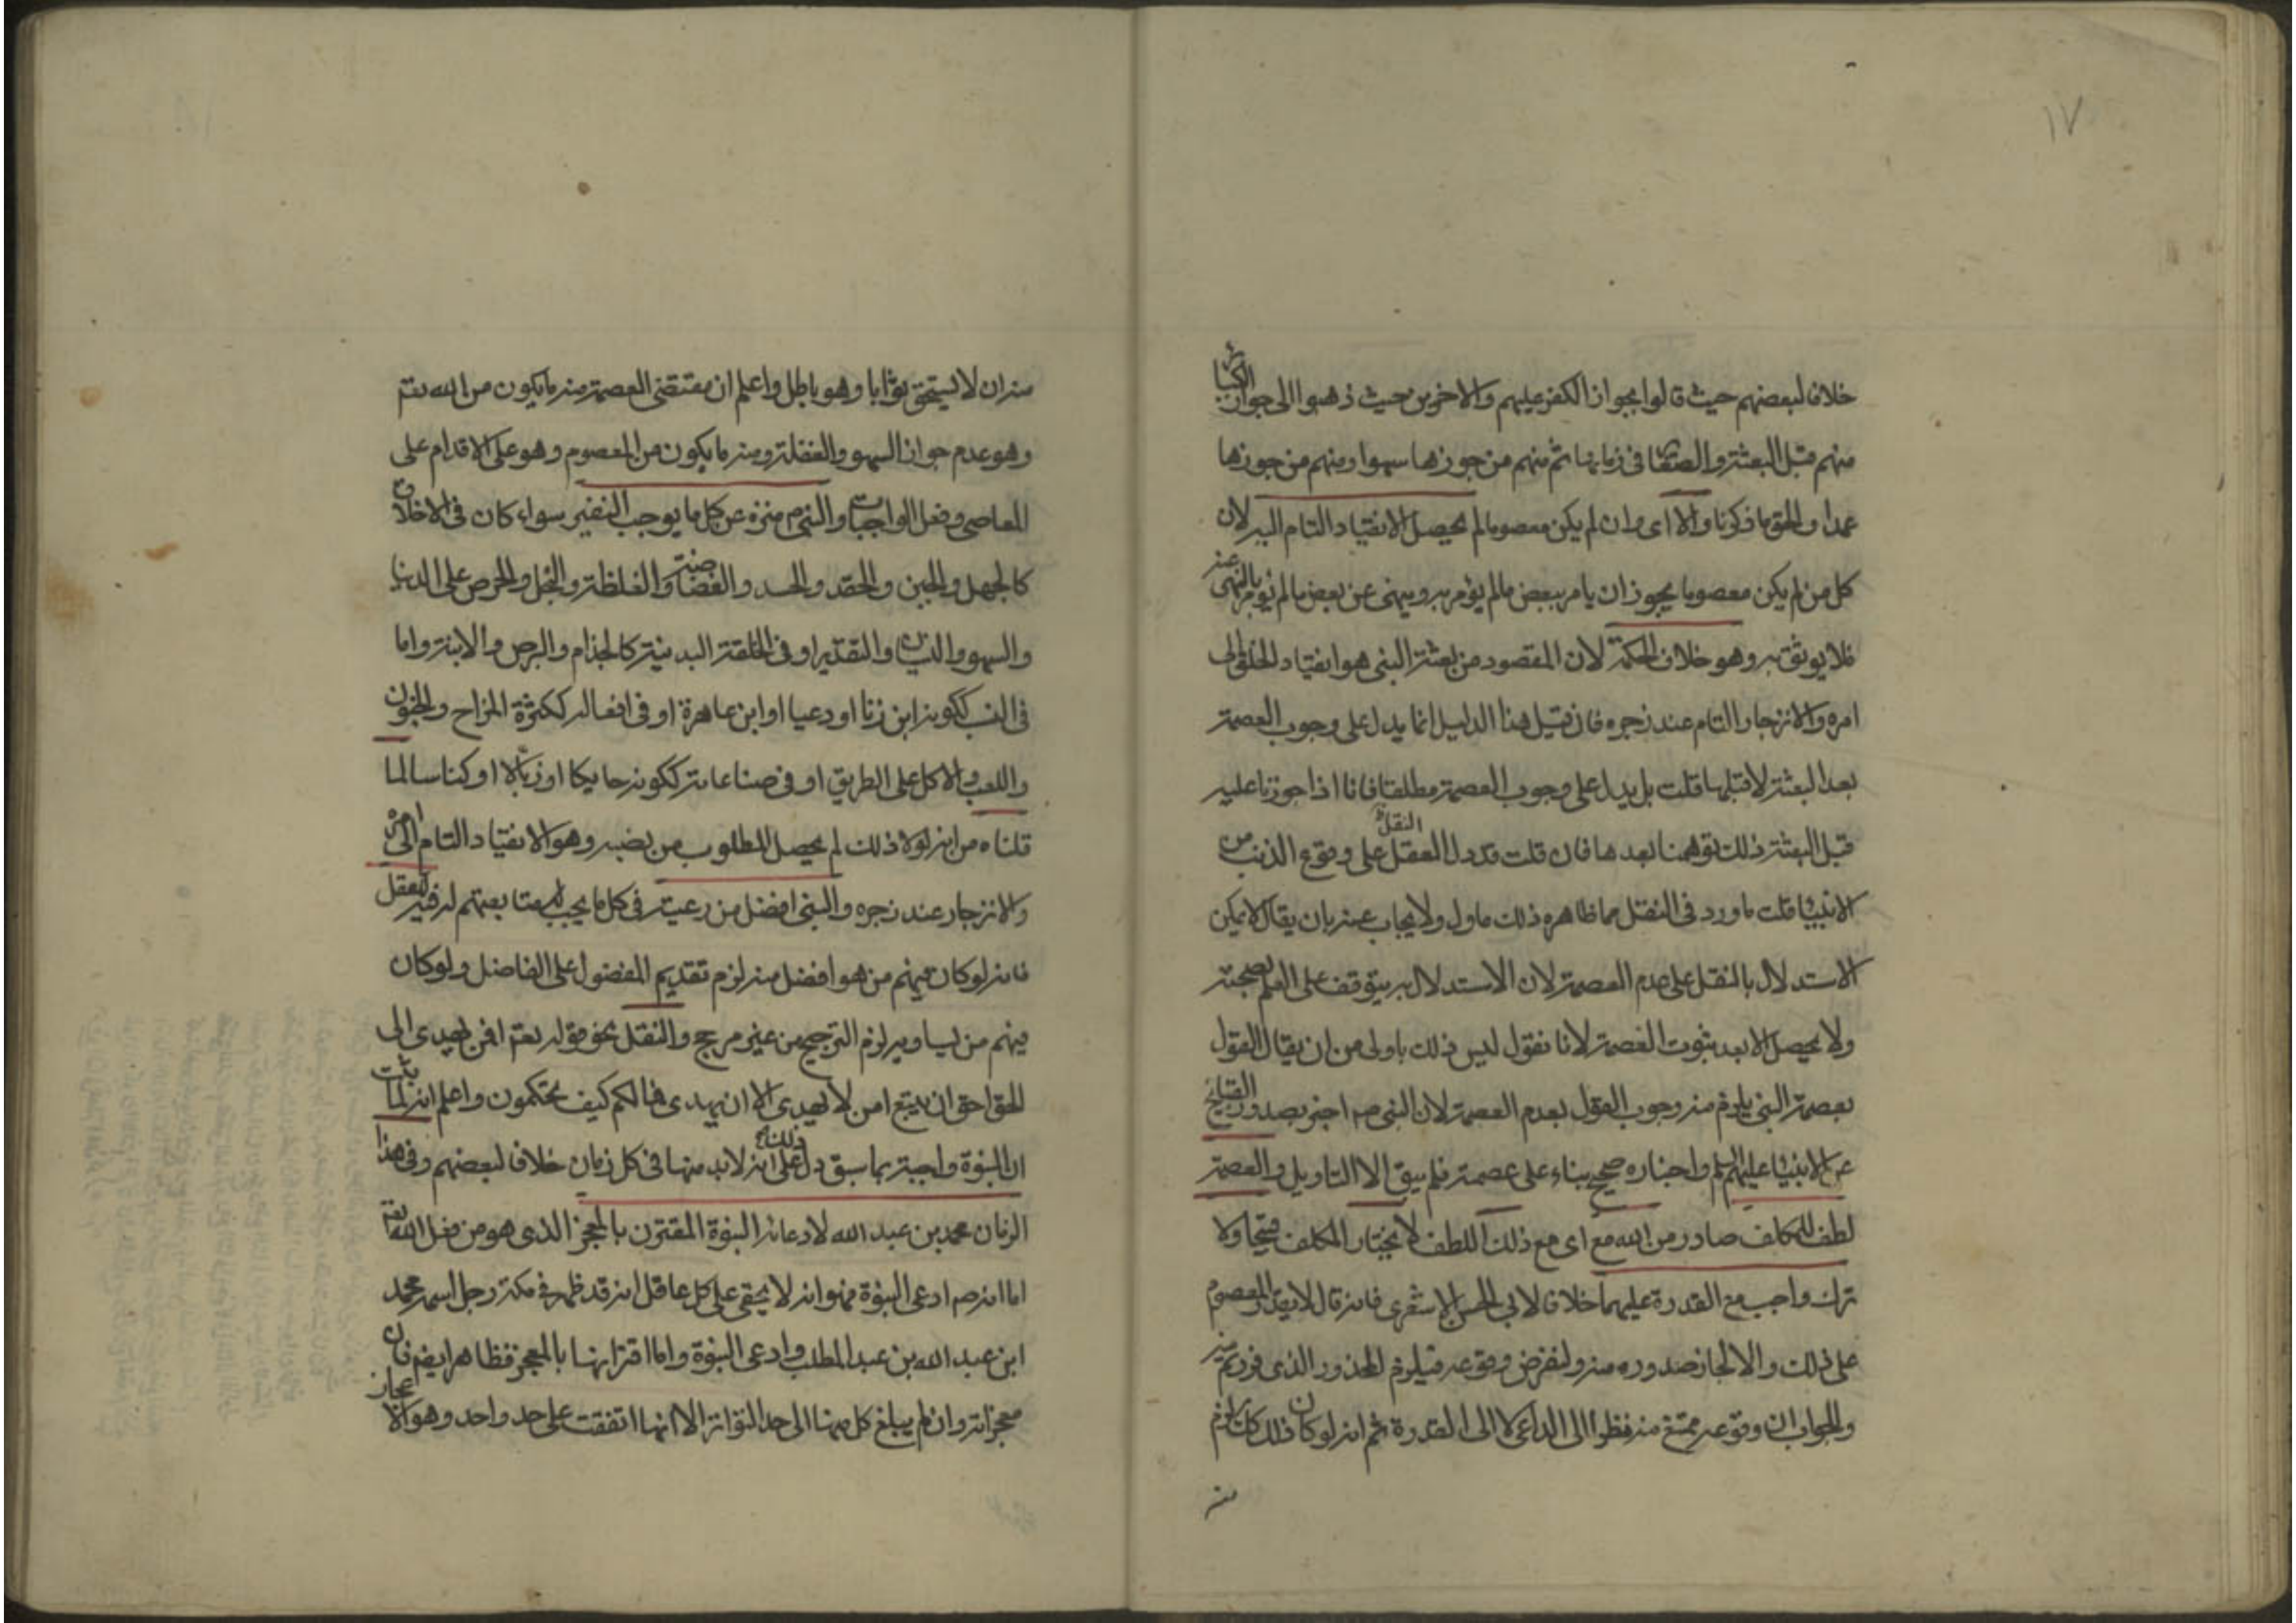 ١٧
خلافا لبعضهم حيث قالوا بجواز الكفر عليهم والاخرين حيث ذهبوا الى جواز الكبائر
منهم قبل البعثة والصغائر في زمانها ثم منهم من جوزها سهوا ومنهم من جوزها
عمدا والحق ما ذكرنا والا اى وان لم يكن معصوما لم يحصل الانقياد التام اليه لان
كل من لم يكن معصوما يجوز ان يامر ببعض مالم يؤمر به وينهى عن بعض مالم يؤمر بالنهى عنه
فلا يوثق به وهو خلاف الحكمة لان المقصود من بعثة النبى هو انقياد الخلق الى
امره والانزجار التام عند زجره فان قيل هذا الدليل انما يدل على وجوب العصمة
بعد البعثة لا قبلها قلت بل يدل على وجوب العصمة مطلقا فانا اذا جوزنا عليه
قبل البعثة ذلك توهمنا بعدها فان قلت قد دل العقل النقل على وقوع الذنب من
الانبياء قلت ما ورد في النقل مما ظاهره ذلك ماول ولا يجاب عنه بان يقال لا يمكن
الاستدلال بالنقل على عدم العصمة لان الاستدلال به يتوقف على العلم بصحته
ولا يحصل الا بعد ثبوت العصمة لانا نقول ليس ذلك باولى من ان يقال القول
بعصمة النبى يلزم منه وجوب القول بعدم العصمة لان النبى صم اخبر بصدور القبايح
عن الانبياء عليهم السلم واخباره صحيح بناء على عصمته فلم يبق الا التاويل والعصمة
لطف للمكلف صادر من الله مع اى مع ذلك اللطف لا يختار المكلف قبيحا ولا
ترك واجب مع القدرة عليهما خلافا لابى الحسن الاشعرى فانه قال لا يقدر المعصوم
على ذلك والا لجاز صدوره منه ولنفرض وقوعه فيلزم المحذور الذى فررتم منه
والجواب ان وقوعه ممتنع منه نظرا الى الداعى لا الى القدرة ثم انه لو كان ذلك كان يلزم
منه
منه ان لا يستحق ثوابا وهو باطل واعلم ان مقتضى العصمة منه ما يكون من الله تعم
وهو عدم جواز السهو والغفلة ومنه ما يكون من المعصوم وهو على الاقدام على
المعاصى وفعل الواجبات والنبى م منزه عن كل ما يوجب التنفير سواء كان في الاخلاق
كالجهل والجبن والحقد والحسد والفضاضة والغلظة والبخل والحرص على الدنيا
والسهو والنسيان والتقتير او في الخلقة البدنية كالجذام والبرص والابنة واما
في النسب ككونه ابن زنا او دعيا او ابن عاهرة او في افعاله ككثرة المزاح والمجون
واللعب والاكل على الطريق او في صناعاته ككونه حايكا او زبالا او كناسا لما
قلناه من انه لولا ذلك لم يحصل المطلوب من نصبه وهو الانقياد التام الى امره
والانزجار عند زجره والنبى افضل من رعيته في كل ما يجب متابعتهم له فيه للعقل
فانه لو كان فيهم من هو افضل منه لزم تقديم المفضول على الفاضل ولو كان
فيهم من يساويه لزم الترجيح من غير مرجح والنقل نحو قوله تعم افمن يهدى الى
الحق احق ان يتبع امن لا يهدى الا ان يهدى فما لكم كيف تحكمون واعلم انه لما ثبت
ان النبوة واجبة بما سبق دل ذلك على انه لابد منها في كل زمان خلافا لبعضهم وفى هذا
الزمان محمد بن عبد الله لادعائه النبوة المقترن بالمعجز الذى هو من فعل الله تعم
اما انه صم ادعى النبوة فهو انه لا يخفى على كل عاقل انه قد ظهر في مكة رجل اسمه محمد
ابن عبد الله بن عبد المطلب وادعى النبوة واما اقترانها بالمعجز فظاهر ايضم فان
معجزاته وان لم يبلغ كل منها الى حد التواتر الا انها اتفقت على حد واحد وهو الاعجاز